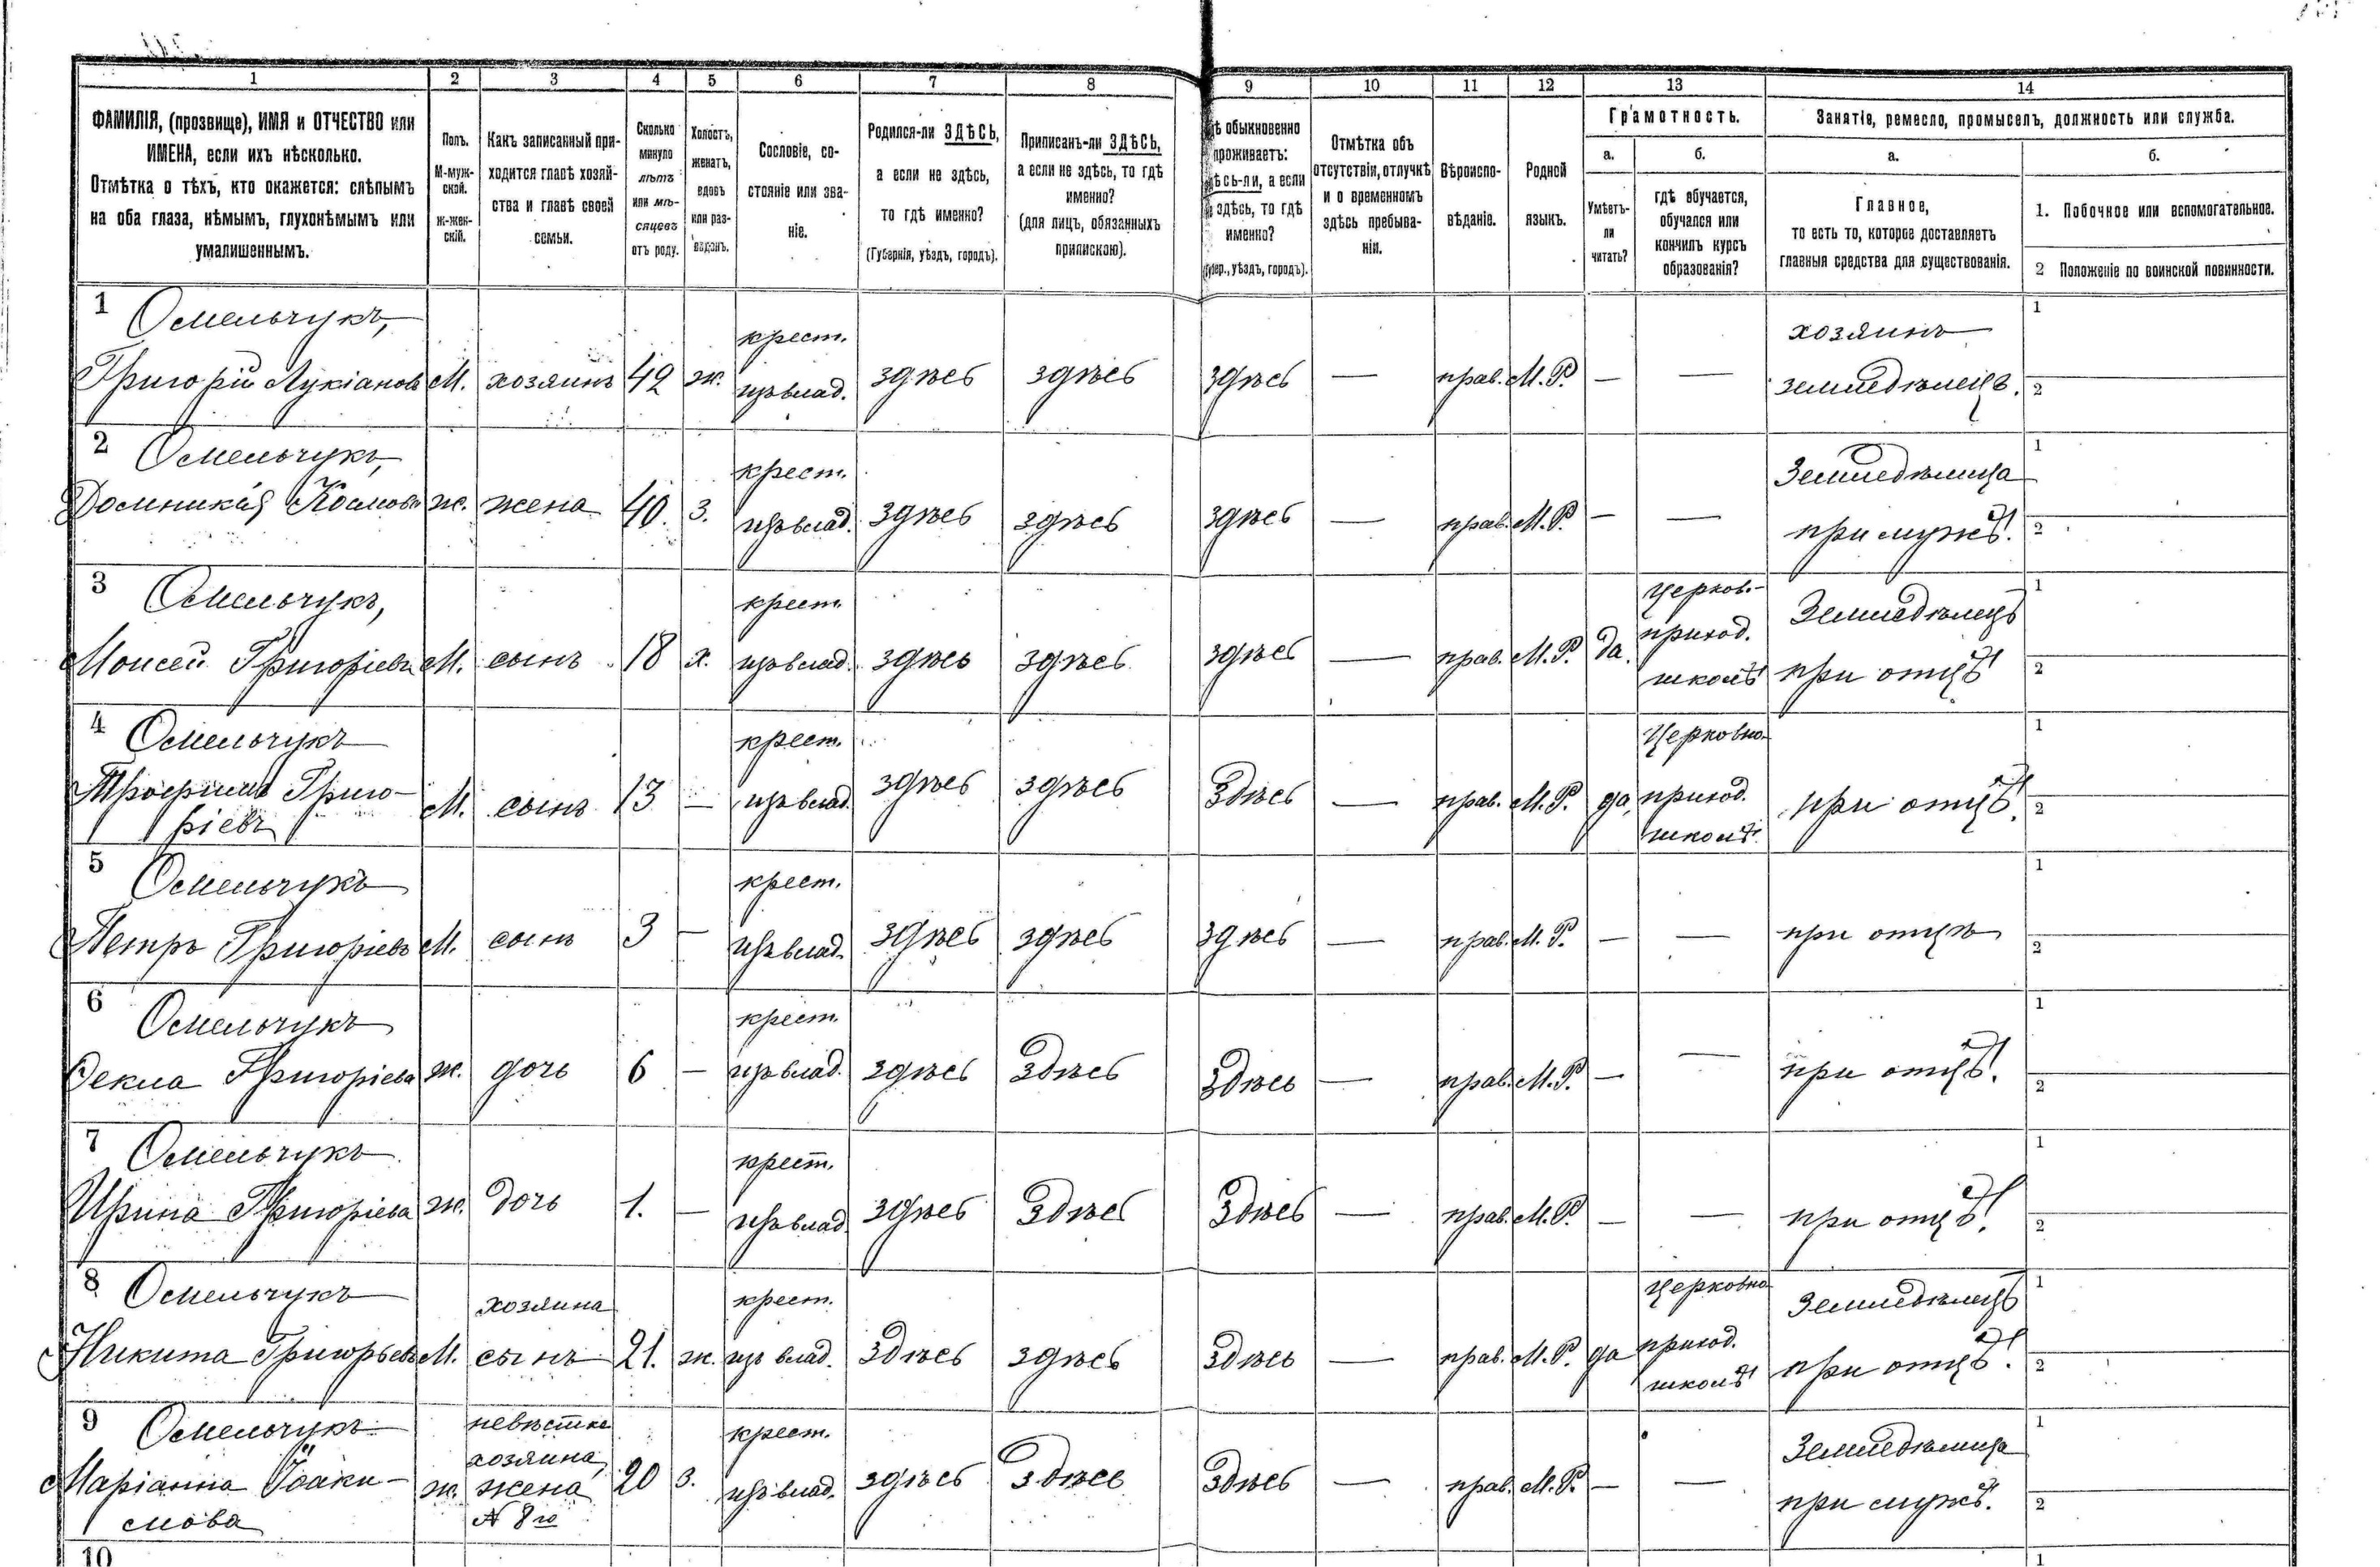 1 2 3 4 5 6 7 8 9 10 11 12 13 14
ФАМИЛІЯ, (прозвище), ИМЯ и ОТЧЕСТВО или
ИМЕНА, если ихъ нѣсколько.
Отмѣтка о тѣхъ, кто окажется: слѣпымъ
на оба глаза, нѣмымъ, глухонѣмымъ или
умалишеннымъ.
Полъ.
М-муж-
ской.
Ж-жен-
скій.
Какъ записанный при-
ходится главѣ хозяй-
ства и главѣ своей
семьи.
Сколько
минуло
лѣтъ
или мѣ-
сяцевъ
отъ роду.
Холостъ,
женатъ,
вдовъ
или раз-
веденъ.
Сословіе, со-
стояніе или зва-
ніе.
Родился-ли ЗДѢСЬ,
а если не здѣсь,
то гдѣ именно?
(Губернія, уѣздъ, городъ).
Приписанъ-ли ЗДѢСЬ,
а если не здѣсь, то гдѣ
именно?
(для лицъ, обязанныхъ
припискою).
обыкновенно
проживаетъ:
а если
здѣсь, то гдѣ
именно?
уѣздъ, городъ).
Отмѣтка объ
отсутствіи, отлучкѣ
и о временномъ
здѣсь пребыва-
ніи.
Вѣроиспо-
вѣданіе.
Родной
языкъ.
Грамотность.
а.
Умѣетъ-
ли
читать?
б.
гдѣ обучается,
обучался или
кончилъ курсъ
образованія?
Занятіе, ремесло, промыселъ, должность или служба.
а.
Главное,
то есть то, которое доставляетъ
главныя средства для существованія.
б.
1. Побочное или вспомогательное.
2 Положеніе по воинской повинности.
1 Омельчукъ, крест. хозяинъ 1
Григорій Лукіановъ М. хозяинъ 42 ж. изъ влад. здѣсь здѣсь здѣсь — прав. М.Р. — — земледѣлецъ. 2
2 Омельчукъ, крест. Земледѣлица 1
Домникія ж. жена 40. з. изъ влад. здѣсь здѣсь здѣсь — прав. М.Р. — — при мужѣ. 2
3 Омельчукъ, крест. церков.- Земледѣлецъ 1
Моисей Григоріевъ М. сынъ 18 х. изъ влад. здѣсь здѣсь здѣсь — прав. М.Р. да. приход. при отцѣ 2
школѣ
4 Омельчукъ крест. Церковно- 1
Трофимъ Григо- М. сынъ 13 — изъ влад. здѣсь здѣсь Здѣсь — прав. М.Р. да, приход. при отцѣ. 2
ріевъ школѣ.
5 Омельчукъ крест. 1
Петръ Григоріевъ М. сынъ 3 — изъ влад. здѣсь здѣсь здѣсь — прав. М.Р. — — при отцѣ 2
6 Омельчукъ крест. 1
Ѳекла Григоріева ж. дочь 6 — изъ влад. здѣсь Здѣсь Здѣсь — прав. М.Р. — — при отцѣ. 2
7 Омельчукъ крест. 1
Ирина Григоріева ж. дочь 1. — изъ влад. здѣсь Здѣсь Здѣсь — прав. М.Р. — — при отцѣ. 2
8 Омельчукъ хозяина крест. Церковно Земледѣлецъ 1
Никита Григорьевъ М. сынъ 21. ж. изъ влад. Здѣсь здѣсь Здѣсь — прав. М.Р. да приход. при отцѣ. 2
школѣ
9 Омельчукъ невѣстка крест. Земледѣлица 1
хозяина,
Маріанна Іоаки- ж. жена 20 з. изъ влад. здѣсь здѣсь Здѣсь — прав. М.Р. — — при мужѣ. 2
мова № 8го
10 1